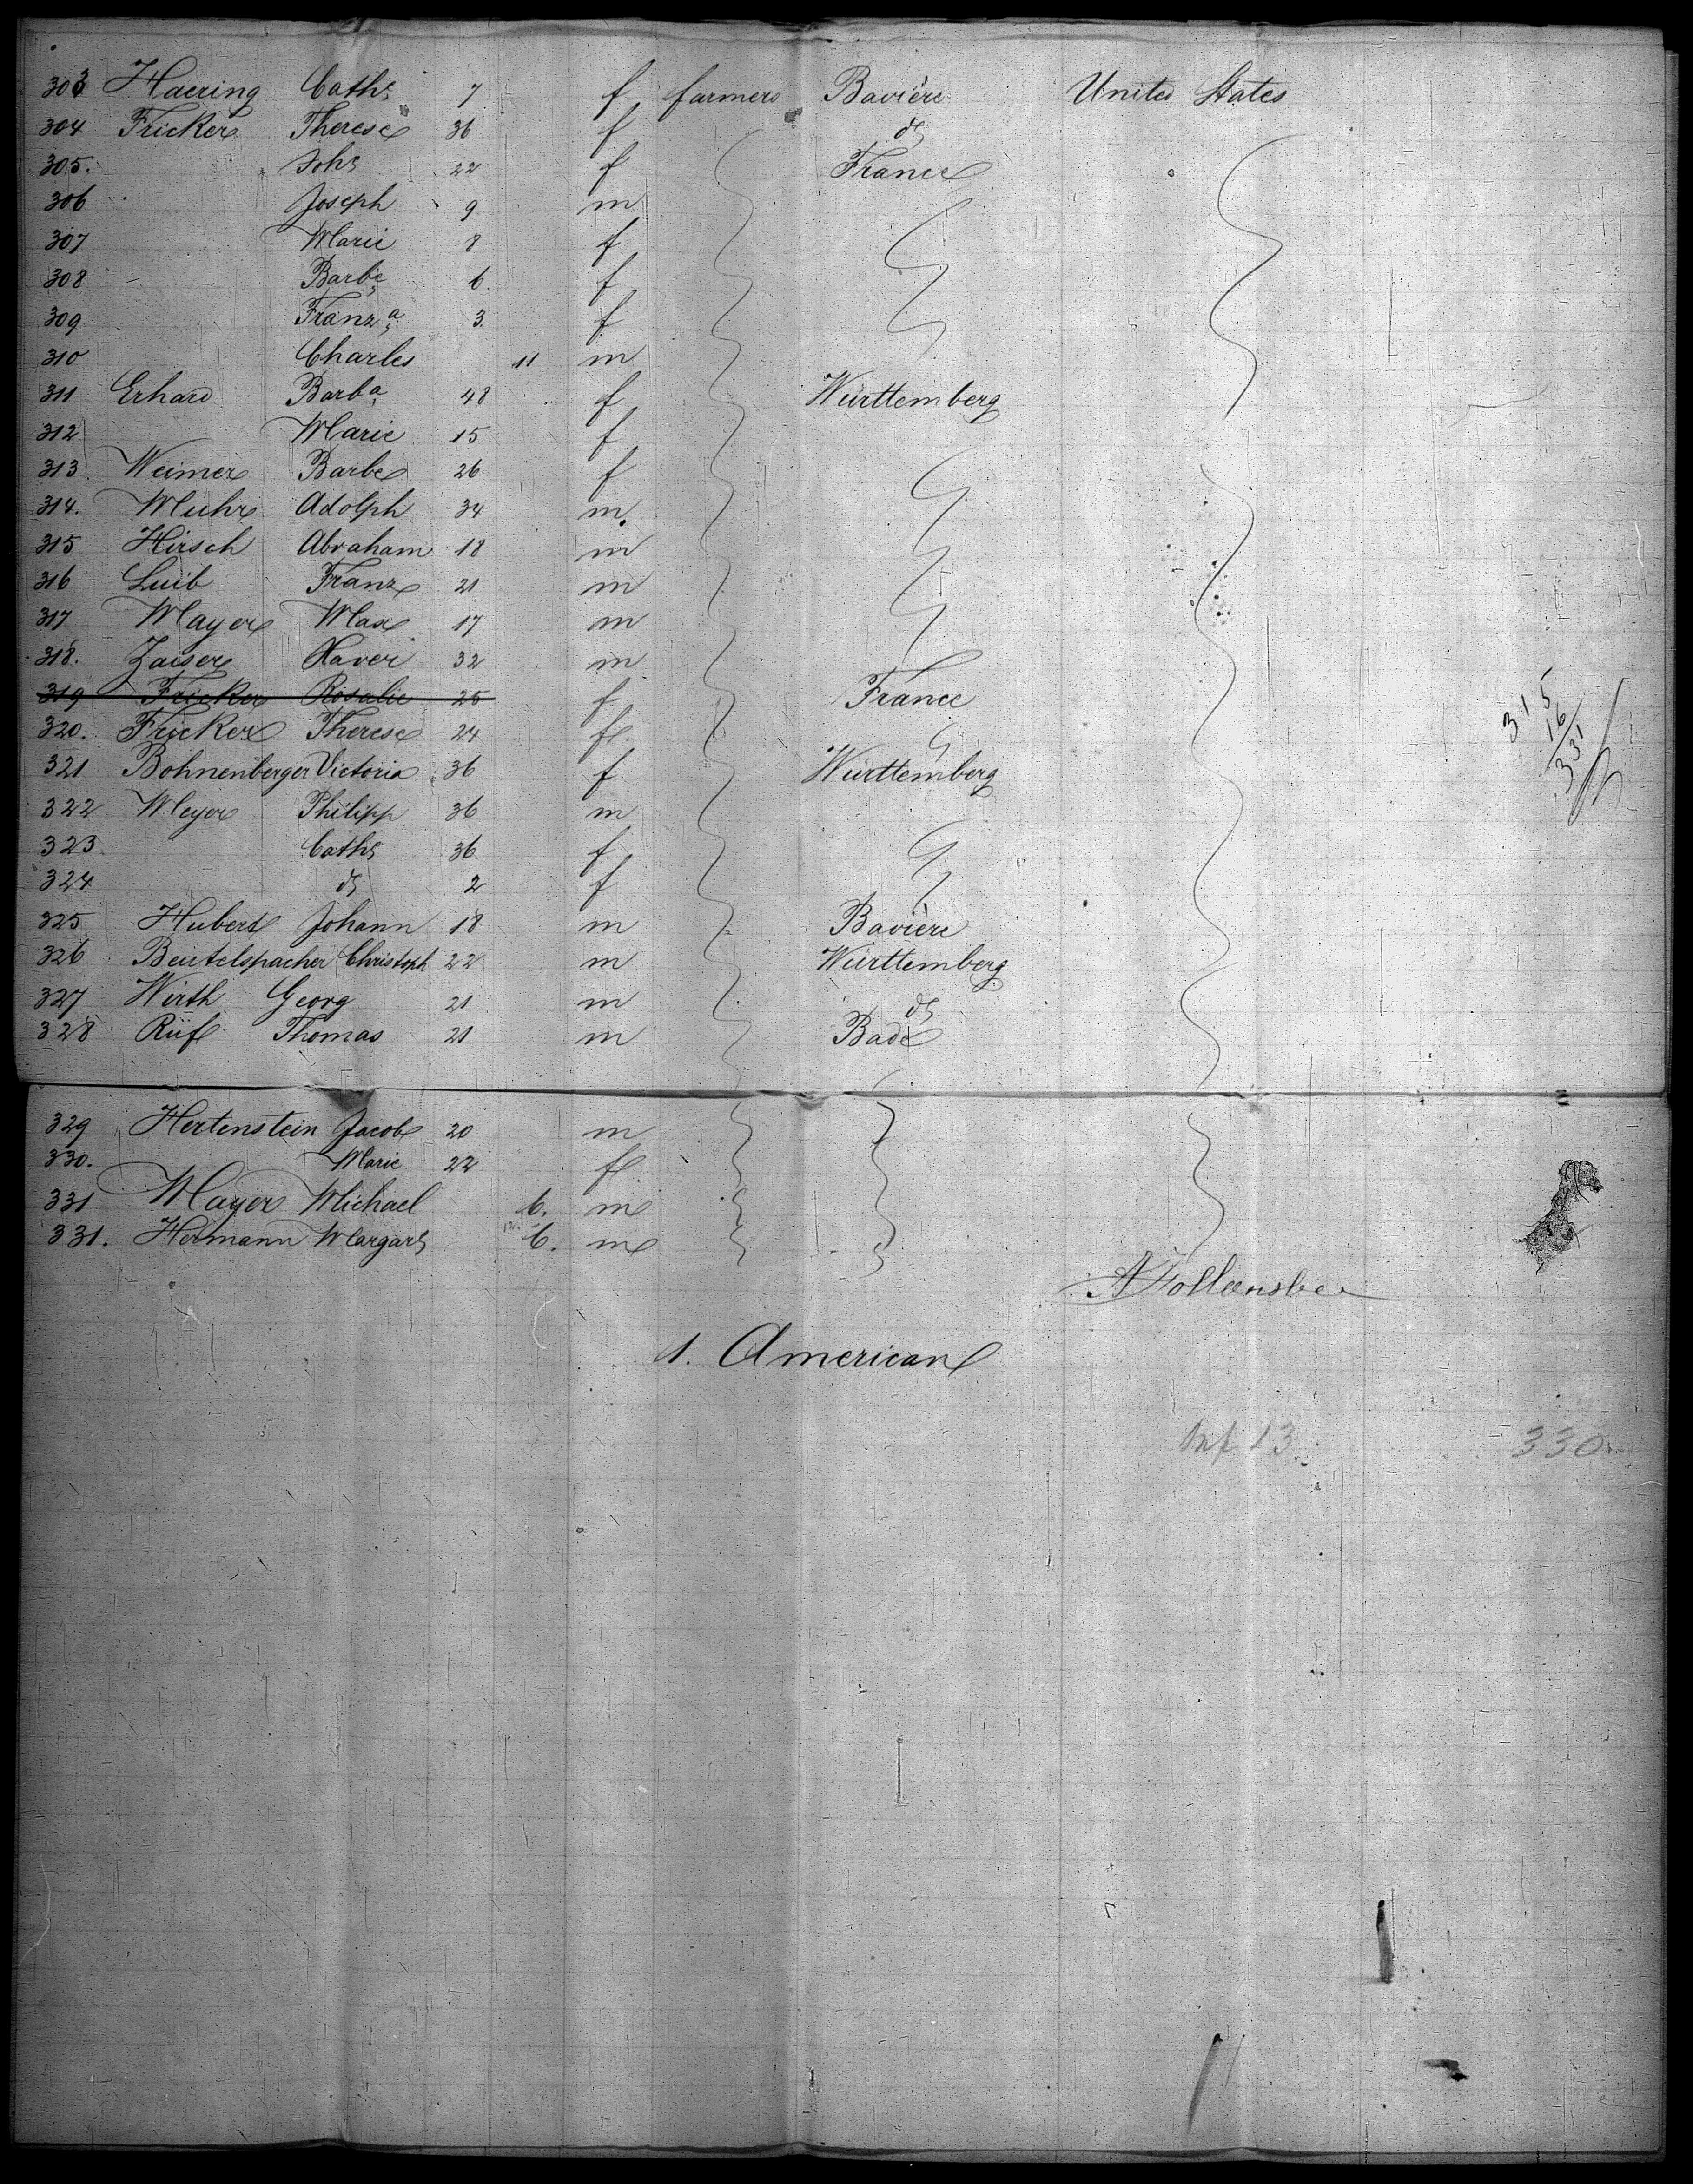 303 Haering Cath: 7 f farmers Bavière United States
304 Fricker Therese 36 f do
305. Joh: 22 f France
306 Joseph 9 m
307 Marie 8 f
308 Barbe 6. f
309 Franz a 3. f
310 Charles 11 m
311 Erhard Barba 48 f Württemberg
312 Marie 15 f
313. Weimer Barbe 26 f
314. Muhr Adolph 34 m.
315 Hirsch Abraham 18 m
316 Luib Franz 21 m
317 Mayer Max 17 m
318. Zaiser Xaver 32 m
319 Fricker Rosalie 25 f France
320. Fricker Therese 24 f.
321 Bohnenberger Victoria 36 f Württemberg
322 Meyer Philipp 36 m
323 Cath: 36 f
324 do 2 f
325 Hubert Johann 18 m Bavière
326 Beutelspacher Christoph 22 m Württemberg
327 Wirth Georg 21 m do
328 Rüf Thomas 21 m Bade
315
16
331
329 Hertenstein Jacob 20 m
330. Marie 22 f
331 Mayer Michael 6. m
331. Hermann Margar: 6. m
1. American
Inf. 13. 330